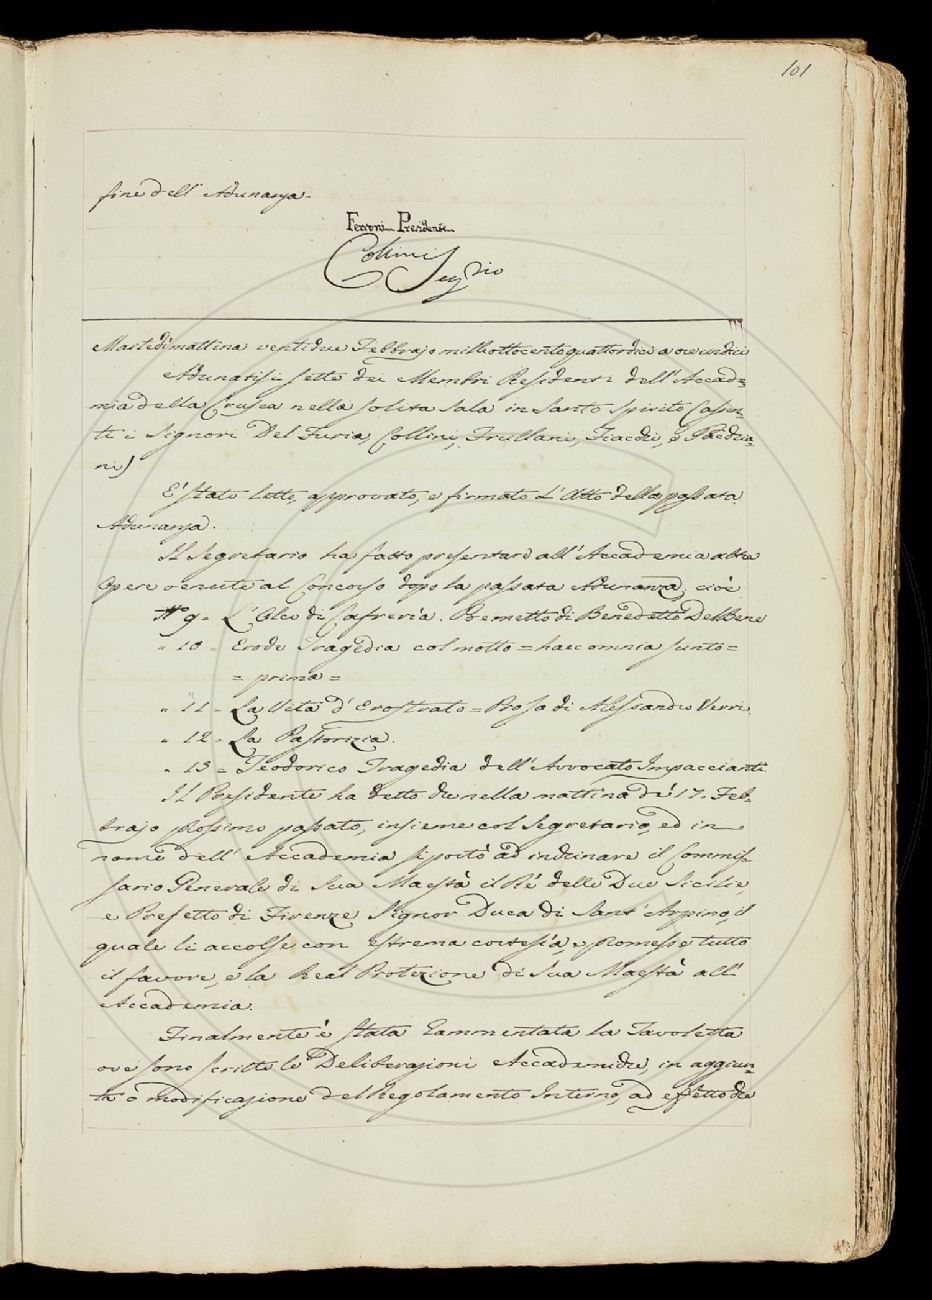 101
fine dell' Adunanza.
Ferroni Presidente
Collini Seg.rio
Martedì mattina ventidue Febbrajo milleottocentoquattordici a ore undici
Adunatisi sette dei Membri Residenti dell'Accade-
mia della Crusca nella solita sala in Santo Spirito (assen-
ti i Signori Del Furia, Collini, Frullani, Fiacchi, e
ni)
E' stato letto, approvato, e firmato l'Atto della passata
Adunanza.
Il Segretario ha fatto presentare all'Accademia altre
Opere venute al Concorso dopo la passata Adunanza, cioè
N.o 9 = L'Olco di Cafreria. Poemetto di Benedetto Del Bene
" 10 = Erode Tragedia col motto = haec omnia sunto =
= prima =
" 11 = La Vita d'Erostrato = Prosa di Alessandro Verri
" 12 = La Pastorizia.
" 13 = Teodorico Tragedia dell'Avvocato Impaccianti
Il Presidente ha detto che nella mattina de' 17. Feb-
brajo prossimo passato, insieme col Segretario, ed in
nome dell'Accademia si portò ad inchinare il Commis-
sario Generale di Sua Maestà il Rè delle Due Sicilie,
e Prefetto di Firenze Signor Duca di Sant'Arpino, il
quale li accolse con estrema cortesia, e promesse tutto
il favore, e la Real Protezione di Sua Maestà all'
Accademia.
Finalmente è stata rammentata la Tavoletta
ove sono scritte le Deliberazioni Accademiche, in aggiun-
ta o modificazione del Regolamento Interno, ad effetto che